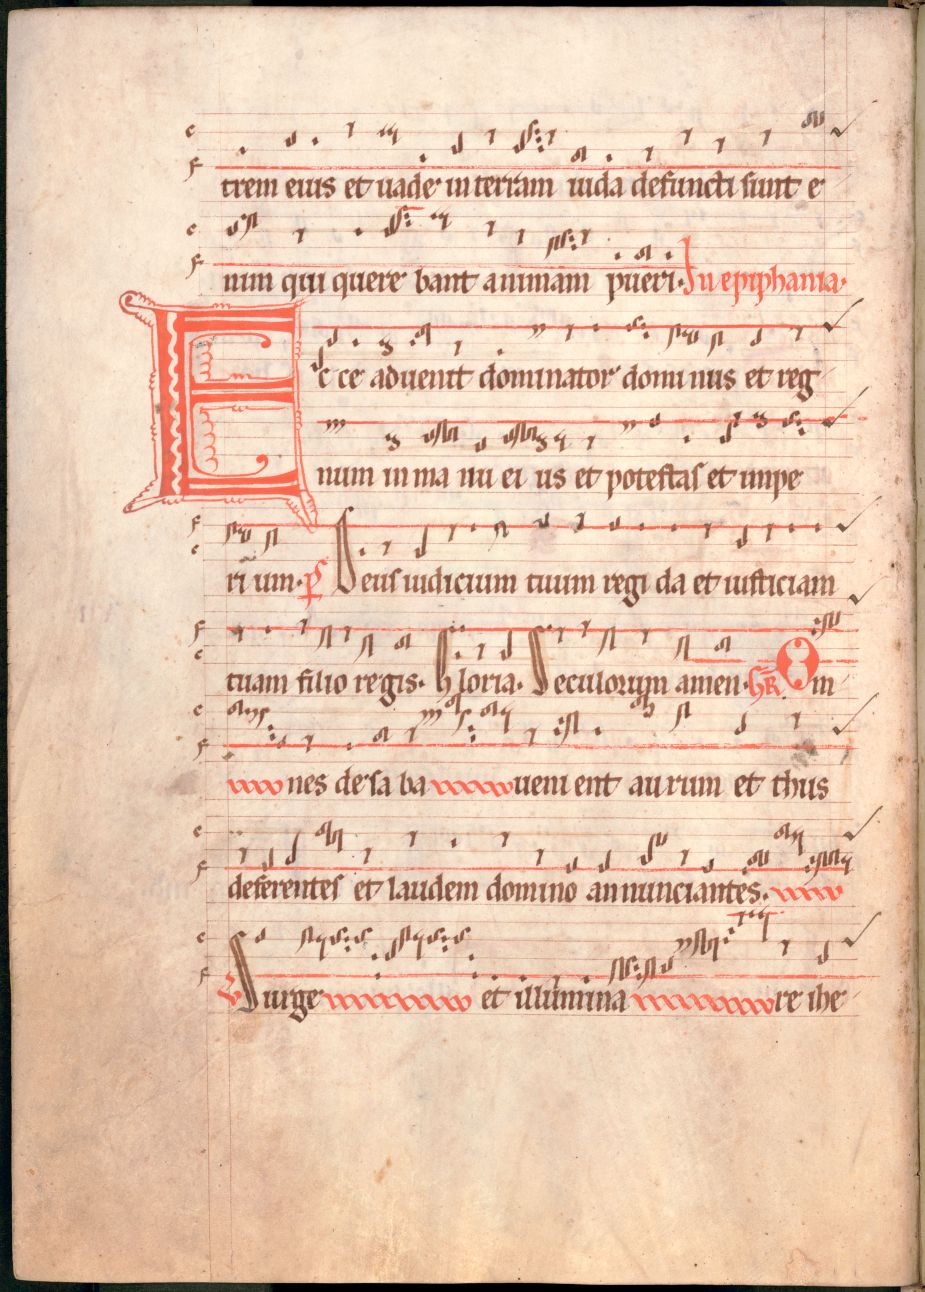 trem eius et uade in terram iuda defuncti sunt e
nim qui quere bant animam pueri. In epiphania.
Ecce aduenit dominator domi nus et reg
num in ma nu ei us et potestas et impe
ri um. Ps Deus iudicium tuum regi da et iusticiam
tuam filio regis. Gloria. Seculorum amen. GR Om
nes de sa ba ueni ent aurum et thus
deferentes et laudem domino annunciantes.
V Surge et illumina re ihe